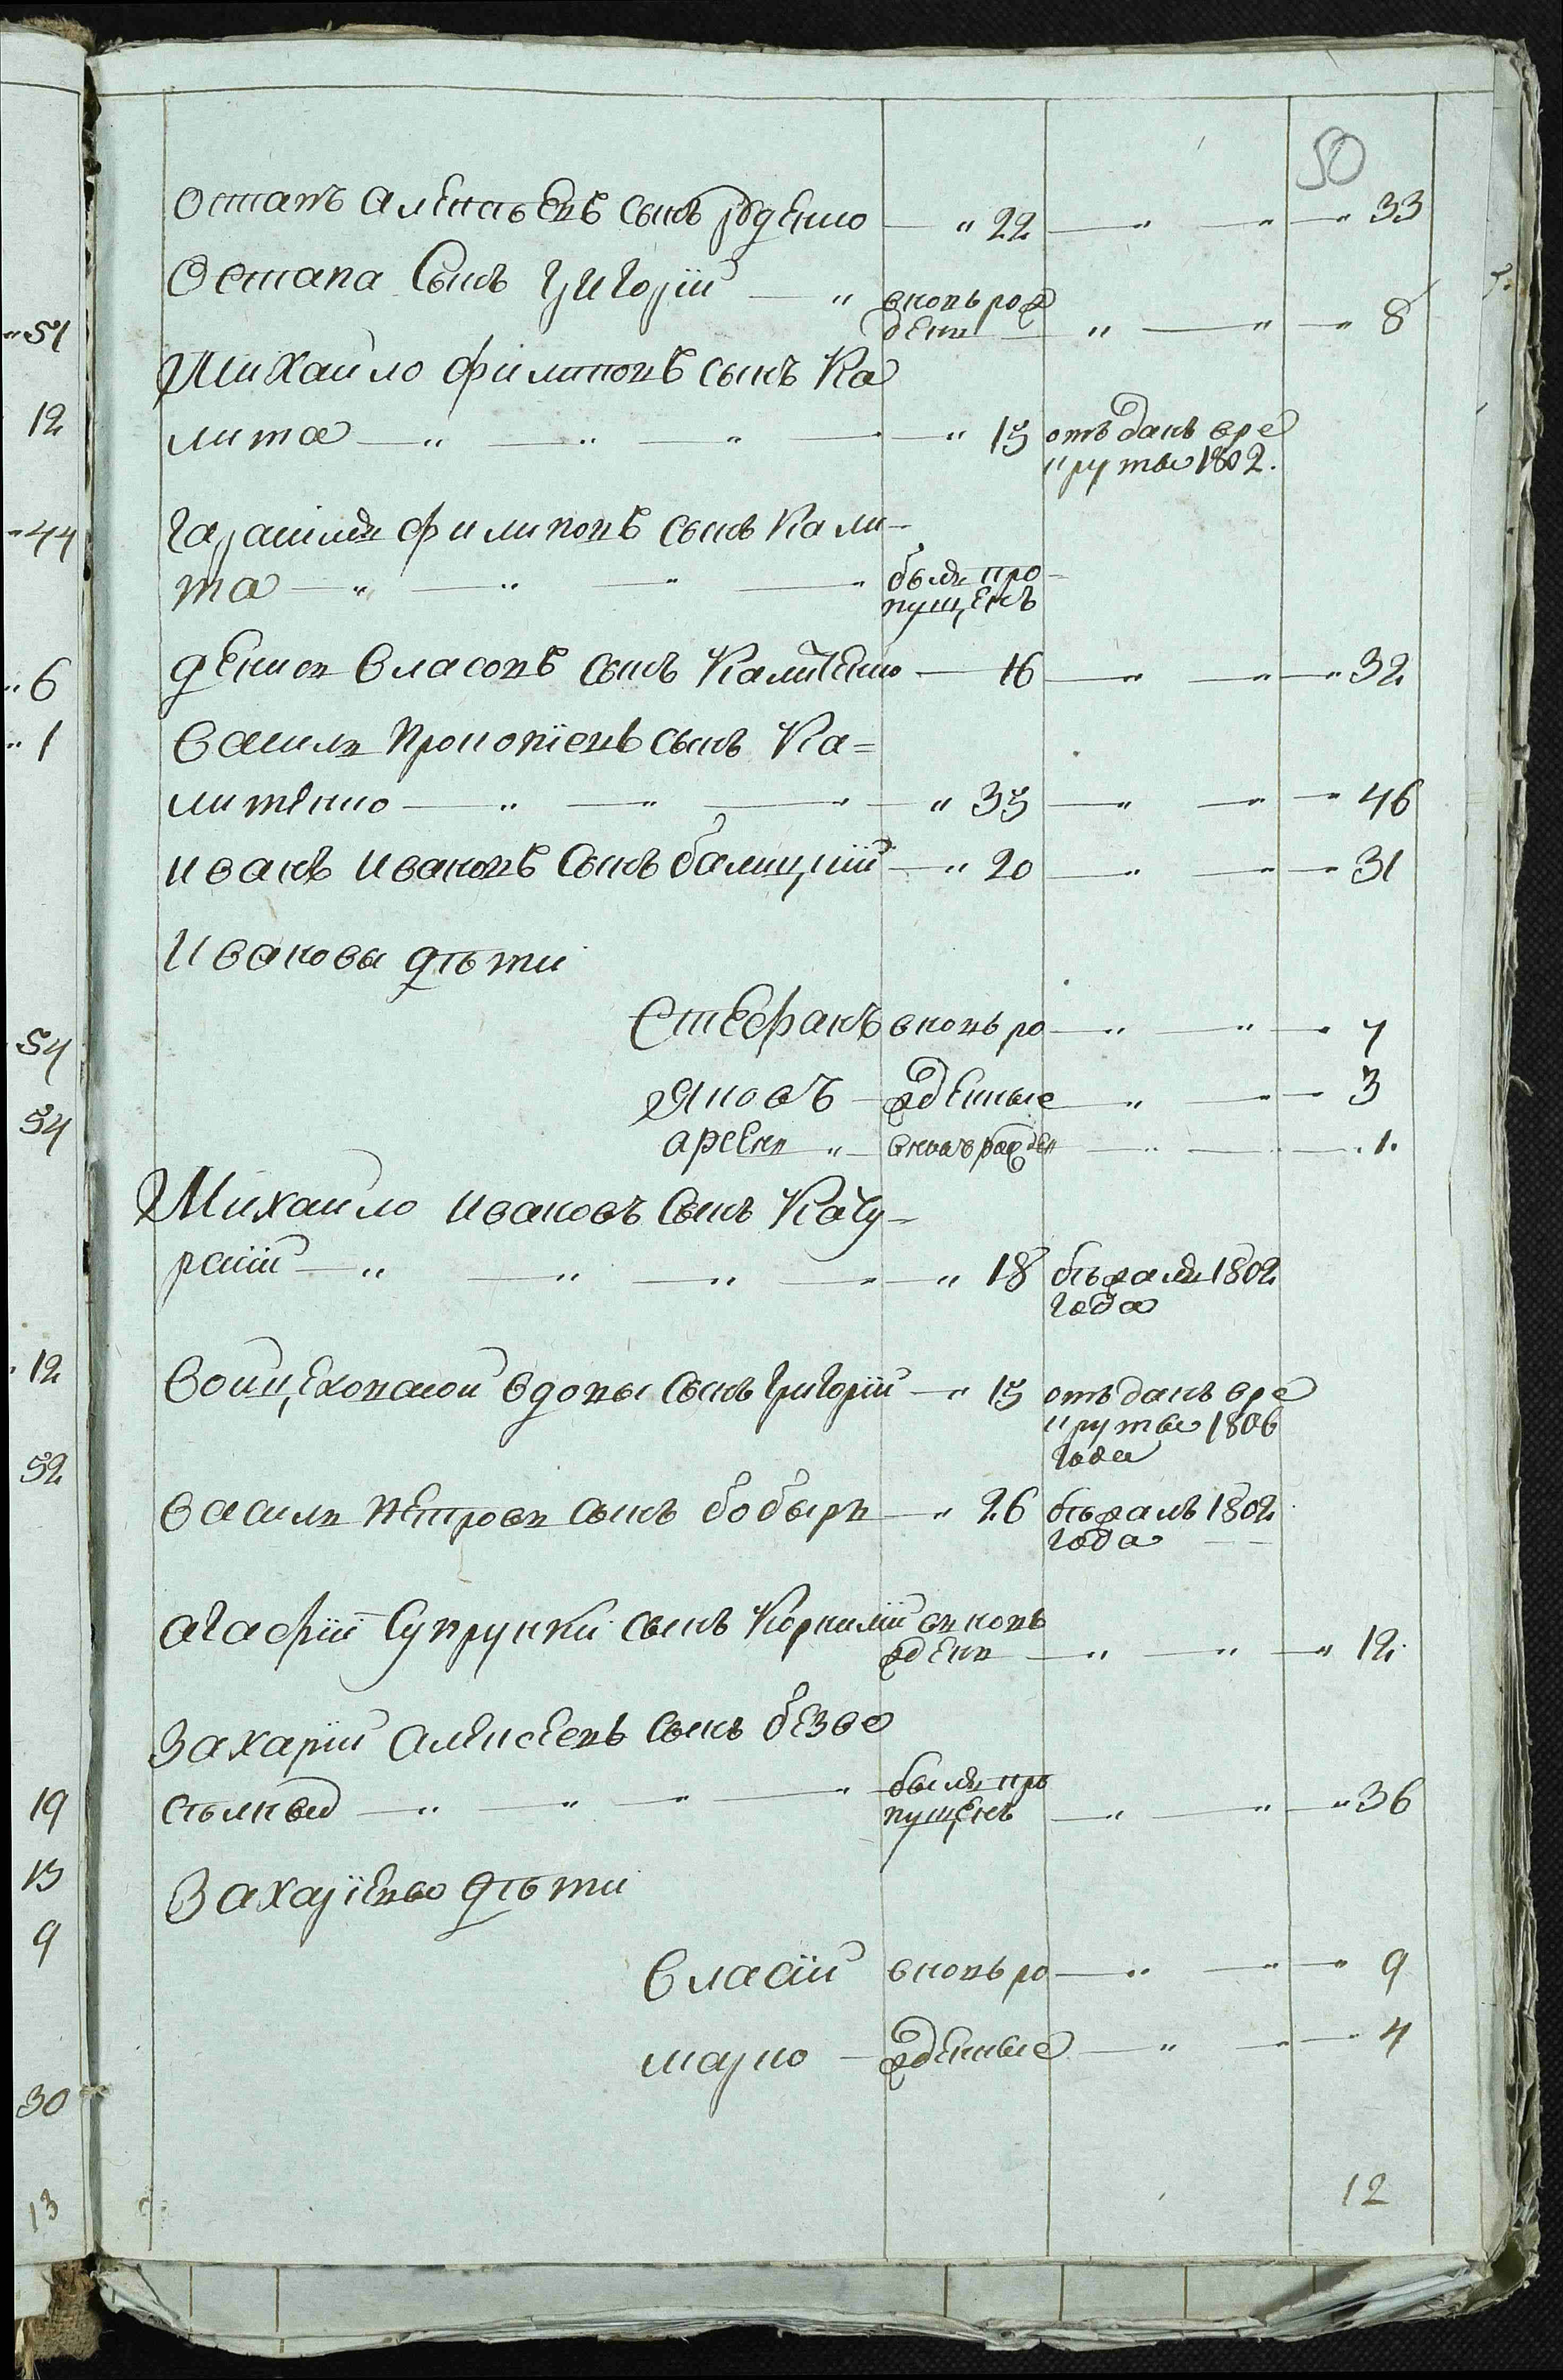 50
Остапъ Алексѣевъ сынъ — " 22 — " — " — " 33
Остапа сынъ Григорій — " вновь рож
денъ — " — " — " 8
Михайло Филиповъ сынъ Ка
лита — " — " — " — " 15 отъданъ вре
круты 1802.
Гарасимъ Филиповъ сынъ Кали-
та — " — " — " — былъ про-
пущенъ
Денисъ Власовъ сынъ Калитенко — 16 — " — " — " 32
Василь Прокопіевъ сынъ Ка=
литенко — " — " — " — " 35 — " — " — " 46
Иванъ Ивановъ сынъ Балицкій — " 20 — " — " — " 31
Ивановы дѣти
Стефанъ вновь ро — " — " — " 7
Яковъ — жденные — " — " — " 3
Арсенъ " — вновь рожден — " — " — " 1.
Михайло Ивановъ сынъ Качу-
рскій — " — " — " — " — " 18 бѣжалъ 1802
года
Войцеховской вдовы сынъ Григорій — " 15 отъданъ вре
круты 1806
года
Василь Петровъ сынъ Бобырь — " 26 бѣжалъ 1802
года
Агафіи Супрунки сынъ Корнилій вновь
жденъ — " — " — " 12
Захарій Алексеевъ сынъ Безве
стълный — " — " — " — " былъ про
пущенъ — " — " — " 36
Захаріевы дѣти
Власій вновь ро — " — " — " 9
Марко — жденные — " — " — " 4
12
"51
12
"44
"6
"1
54
34
12
52
19
13
9
30
13